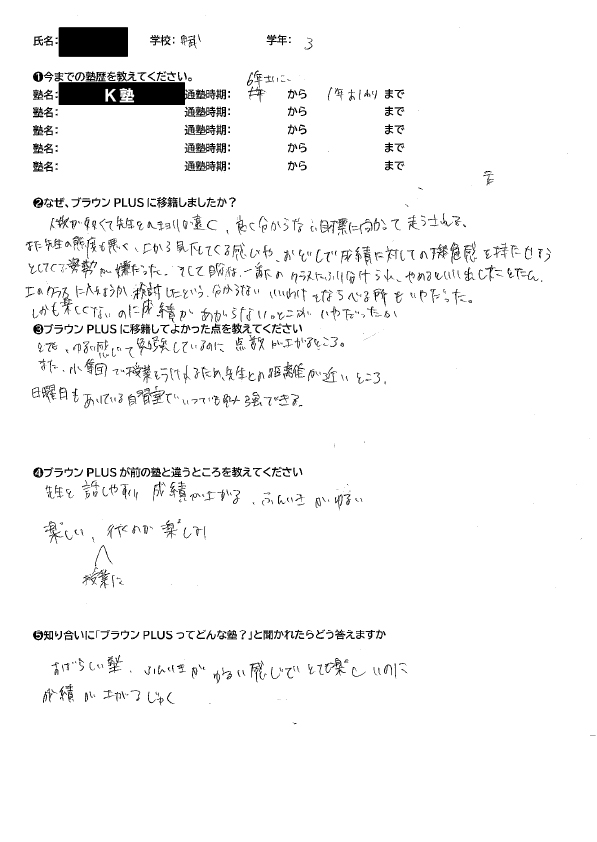 氏名: 学校: 学年: 3
❶今までの塾歴を教えてください。
6年生に
塾名: K塾 通塾時期: から 1年おわり まで
塾名: 通塾時期: から まで
塾名: 通塾時期: から まで
塾名: 通塾時期: から まで
塾名: 通塾時期: から まで
❷なぜ、ブラウンPLUSに移籍しましたか？
人数が多くて先生とのキョリが遠く、良く分からない目標に向かって走らされる。
また先生の態度も悪く、上から見下してくる感じや、おどしで成績に対しての危機感を持たせよう
としてくる姿勢が嫌だった。そして自分は、一番下のクラスにふり分けられ、やめるといい出したとたん、
上のクラスに入れようか検討したという、分からないいいわけをならべる所もいやだった。
しかも楽しくないのに成績があがらないところがいやだったから
❸ブラウンPLUSに移籍してよかった点を教えてください
とても、ゆるい感じで勉強しているのに点数が上がるところ。
また、小集団で授業をうけれるため先生との距離が近いところ。
日曜日もあいている自習室でいつでも勉強できる。
❹ブラウンPLUSが前の塾と違うところを教えてください
先生と話しやすい 成績が上がる、ふんいきがゆるい
楽しい、行くのが楽しみ
授業に
❺知り合いに「ブラウンPLUSってどんな塾？」と聞かれたらどう答えますか
すばらしい塾、ふんいきがゆるい感じでとても楽しいのに
成績が上がるじゅく